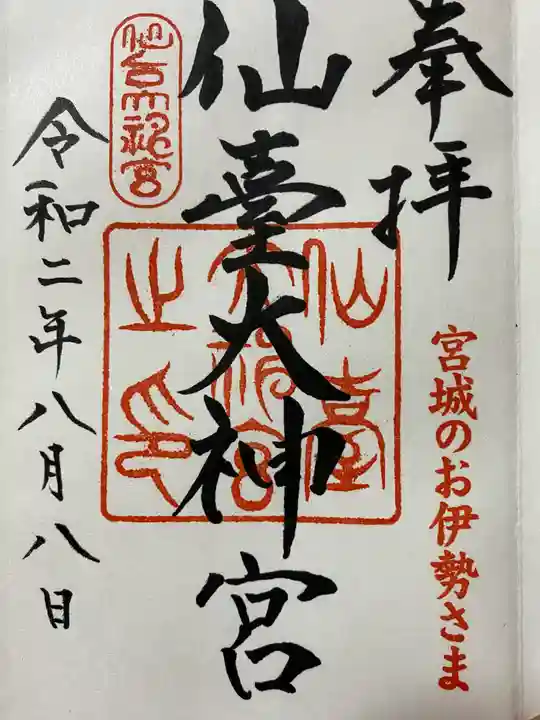 奉拝
宮城のお伊勢さま
仙臺大神宮
仙臺大神宮之印
仙台大神宮
令和二年八月八日